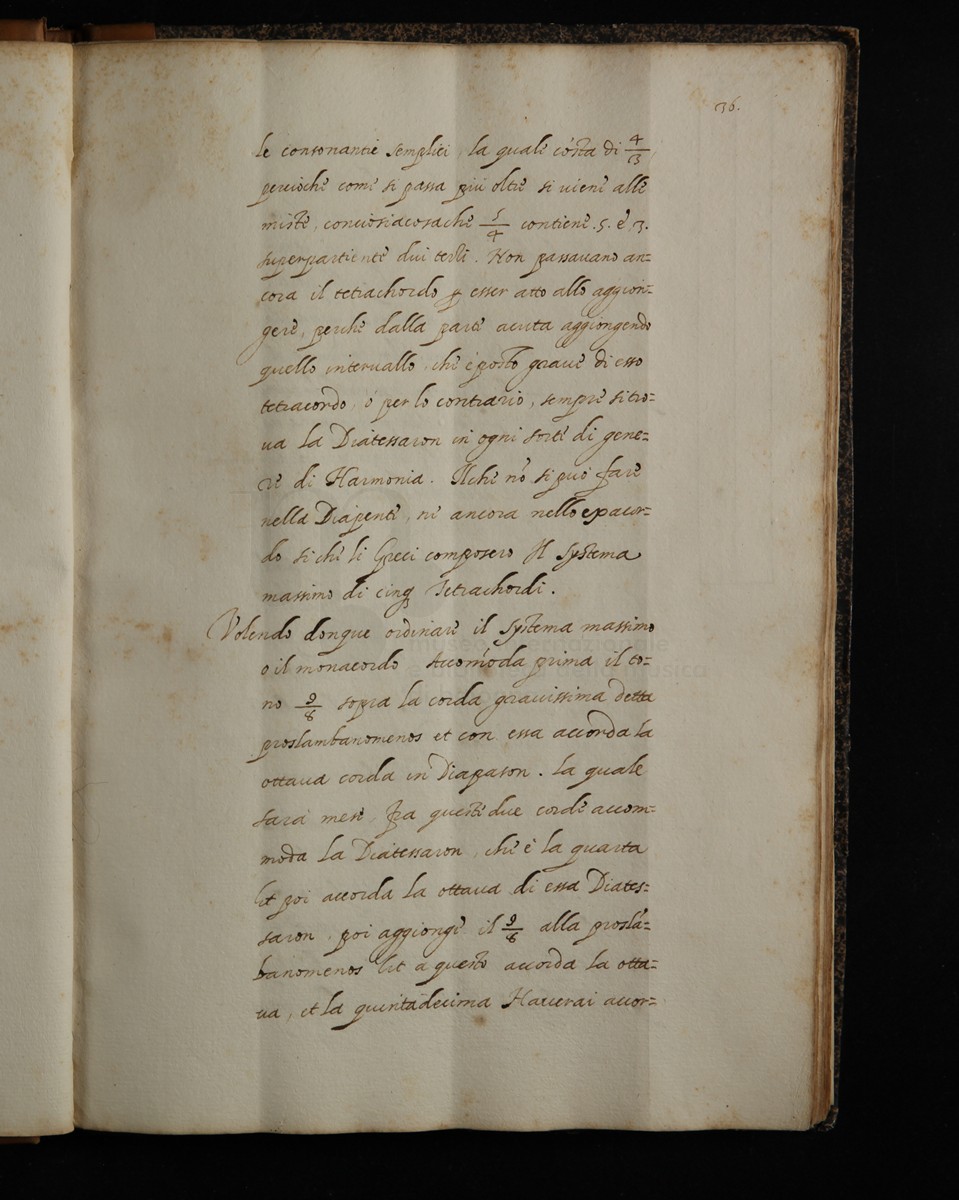 36.
le consonantie semplici, la quale cósta di 4/3,
percioche come si passa piu oltre si viene alle
miste, conciosiacosache 5/4 contiene .5. e 3.
superpartiente dui terti. Non passauano an=
cora il tetrachordo ꝑ esser atto allo aggion=
gere, perche dalla parte acuta aggiongendo
quello interuallo, che è posto graue di esso
tetracordo, ò per lo contrario, sempre si tro=
ua la Diatessaron in ogni sorte di gene=
re di Harmonia. Ilche nō si può fare
nella Diapente, ne ancora nello exacor=
do si che li Greci composero Il Systema
massimo di cinqꝫ Tetrachordi.
Volendo donque ordinare il systema massimo
o il monacordo Accomoda prima il to=
no 9/8 sopra la corda grauissima detta
proslambanomenos et con essa accorda la
ottaua corda in Diapason. la quale
sarà mese, fra queste due corde accom=
moda la Diatessaron, che è la quarta
Et poi accorda la ottaua di essa Diates=
saron, poi aggionge il 9/8 alla proslā=
banomenos Et a questo accorda la otta=
ua, et la quintadecima Hauerai accor=